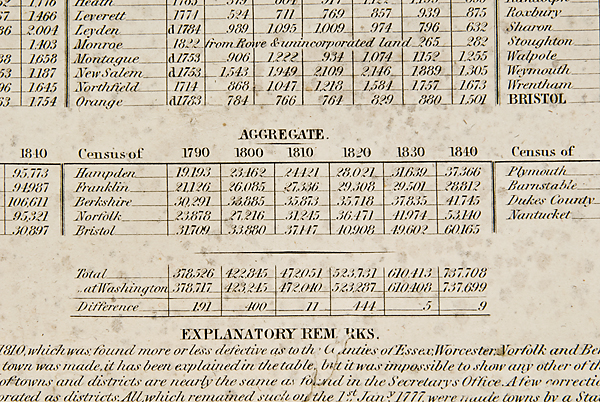 1466 Leverett 1774 524 711 769 857 939 875 Roxbury
2.004 Leyden &1784 989 1.095 1.009 974 796 632 Sharon
1403 Monroe 1822 from Rowe & unincorporated land 265 282 Stoughton
1.658 Montague &1753 906 1.222 934 1.074 1.152 1.255 Walpole
1.187 New Salem &1753 1.543 1.949 2.109 2.146 1.889 1.305 Weymouth
1.645 Northfield 1714 868 1.047 1.218 1.584 1.757 1.673 Wrentham
1.754 Orange &1783 784 766 764 829 880 1.501 BRISTOL
AGGREGATE.
1840 Census of 1790 1800 1810 1820 1830 1840 Census of
95,773 Hampden 19.193 23.462 24.421 28.021 31.639 37.366 Plymouth
94987 Franklin 21.126 26.085 27.336 29.308 29.501 28.812 Barnstable
106,611 Berkshire 30,291 33,885 35.873 35.718 37.835 41.745 Dukes County
95,321 Norfolk 23.878 27.216 31.245 36.471 41.974 53.140 Nantucket
30.897 Bristol 31.709 33.880 37.147 40.908 49.602 60.165
Total 378.526 422.845 472.051 523.731 610.413 737.708
..at Washington 378.717 423.245 472.040 523.287 610.408 737.699
Difference 191 400 11 444 .5 .9
EXPLANATORY REM RKS.
1810, which was found more or less defective as to th Counties of Essex, Worcester, Norfolk and Ber
town was made, it has been explained in the table, but it was impossible to show any other of th
of towns and districts are nearly the same as found in the Secretary's Office. A few correctio
orated as districts. All, which remained such on the 1st Jany 1777 were made towns by a Sta